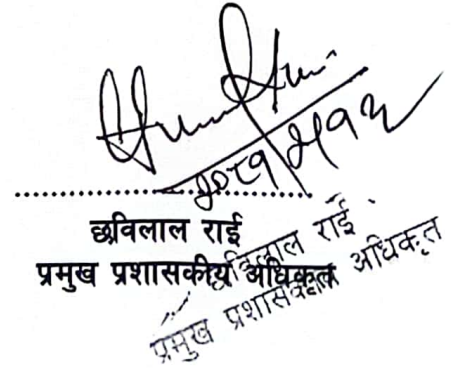 २०८१/५/१३
छविलाल राई
प्रमुख प्रशासकीय अधिकृत
छविलाल राई
प्रमुख प्रशासकीय अधिकृत